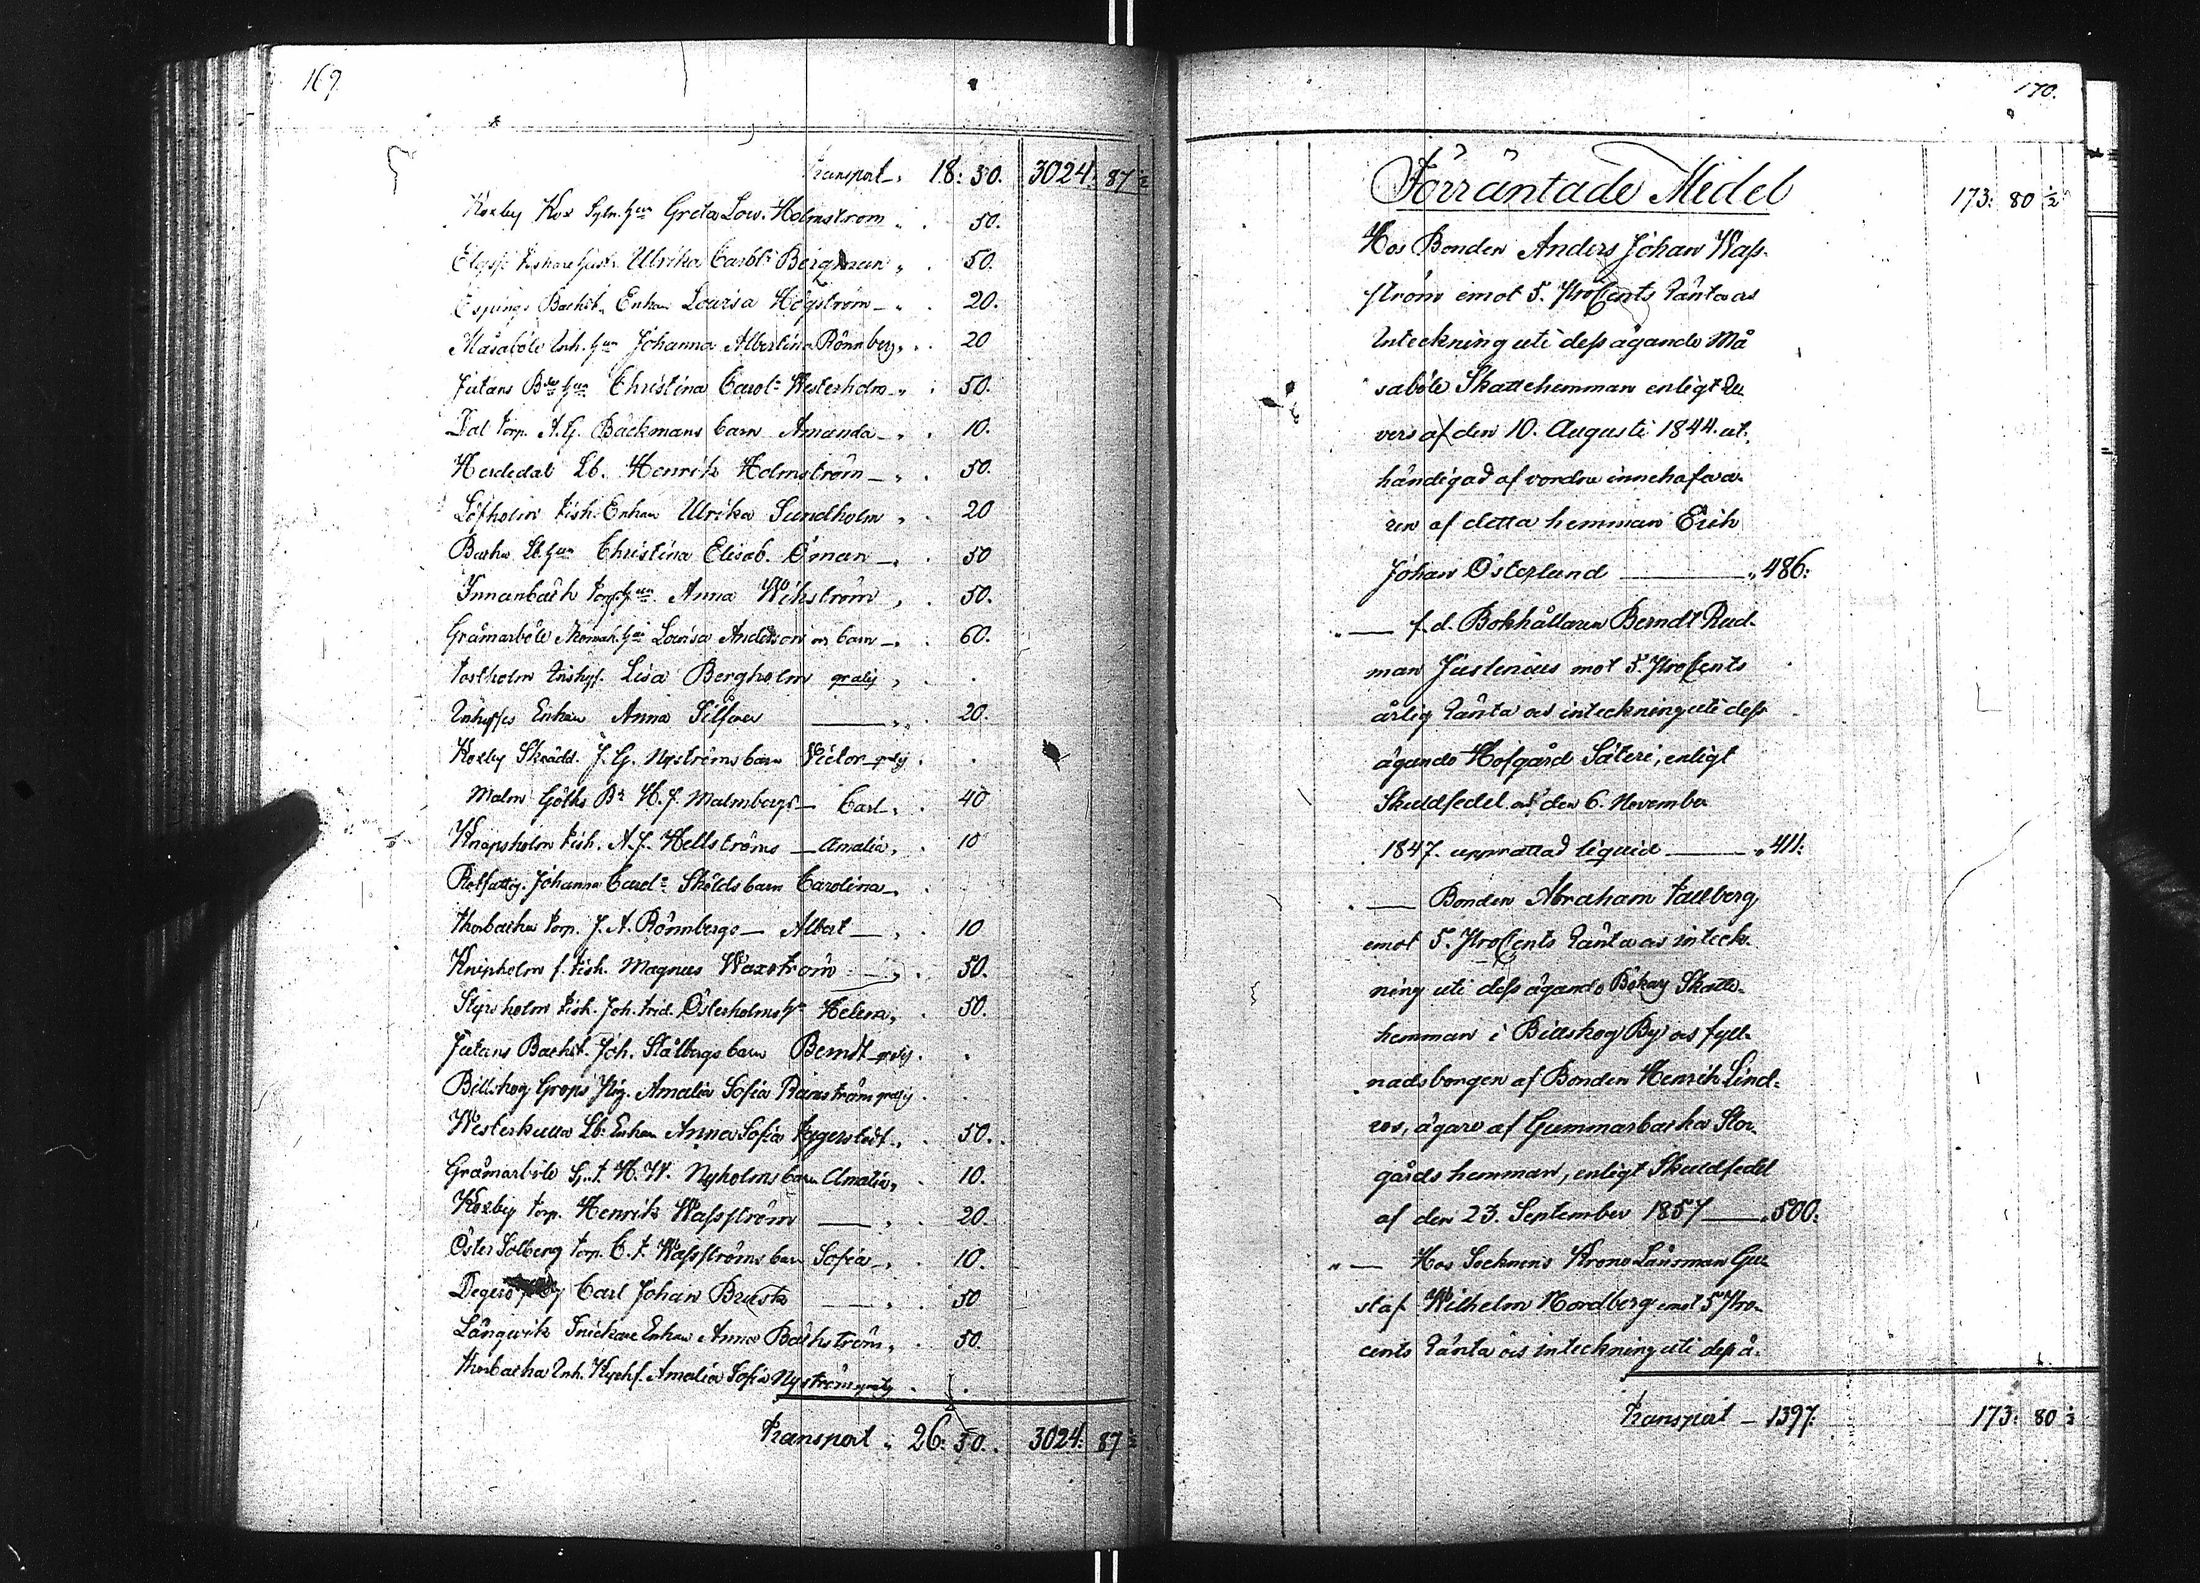 169.
Transport „ 18: 50. 3024: 87 ½
Koxby Greta Lov. Holmstrom „ . 50.
Ulrika Carol: Bergman „ . 50.
Espings Backst. Enkan Lovisa Högström – „ . 20.
Måsaböle Inh. Hun Johanna Albertina Rönnberg „ . 20
Jutans Hun Christina Carol: Westerholm „ . 50.
Dal torp. A. G. Bäckmans barn Amanda – „ . 10.
Herdedal Lb. Henrik Holmström – „ . 50.
Löfholm Fisk. Enkan Ulrika Sundholm „ . 20
Backa Lb. Hun Christina Elisab. Öman – „ . 50
Innanbäck torp. Hun Anna Wikström „ . 50.
Gråmarböle Lovisa Anderson barn – „ . 60.
Lisa Bergholm gratis „ . .
Inhyses Enkan Anna Silfver — „ . 20.
Koxby Skrädd. J. G. Nyströms barn Victor gratis . .
Malm Göths H. J. Malmbergs — Carl „ . 40
Knapsholm Fisk. A. J. Hellströms — Amalia „ . 10
Rotfattig. Johanna Carol: Skölds barn Carolina „ .
Thorbacka torp. J. A. Rönnbergs — Albert — „ . 10
Knipholm f. Fisk. Magnus Waxström — „ . 50.
Fisk. Joh. Frid. Österholms Helena „ . 50.
Jutans Backst. Joh. Stålbergs barn Berndt gratis . .
Billskog Grops Pig. Amalia Sofia gratis . .
Westerkulla Lb: Enkan Anna Sofia Fagerstedt „ . 50.
Gråmarböle H. W. Nyholms barn Amalia „ . 10.
Koxby torp. Henrik Wassström — „ . 20.
Öster Solberg torp. C. F. Wassströms barn Sofia – „ . 10.
Degerö Carl Johan — „ . 50
Långvik Snickare Enkan Anna Bäckström „ . 50.
Thorbacka Inh. Amalia Sofia Nyström gratis . .
Transport „ 26: 50. 3024: 87 ½
170.
Förräntade Medel 173: 80 ½
Hos Bonden Anders Johan Wass-
ström emot 5. ProCents ränta os
Inteckning uti dess ägande Må
saböle Skattehemman enligt Re
vers af den 10. Augusti 1844. ut-
händigad af vordne innehafva-
ren af detta hemman Erik
Johan Österlund — „ 486:
„ — f. d. Bokhållaren Berndt Rud-
man Justenius mot 5. ProCents
årlig ränta os inteckning uti dess
ägande Hofgård Säteri, enligt
Skuldsedel af den 6. November
1847. upprättad liquid — „ 411:
„ — Bonden Abraham Fallberg
emot 5. ProCents ränta os inteck-
ning uti dess ägande Bökars Skatte-
hemman i Billskog By os fyll-
nadsborgen af Bonden Henrik Lind-
ros, ägare af Gummarbacka Stor-
gårds hemman, enligt Skuldsedel
af den 23. September 1857 — „ 500:
„ — Hos Socknens Krono Länsman Gu-
staf Wilhelm Nordberg emot 5 Pro-
cents ränta os inteckning uti dess ä-
Transport – 1397: 173: 80 ½